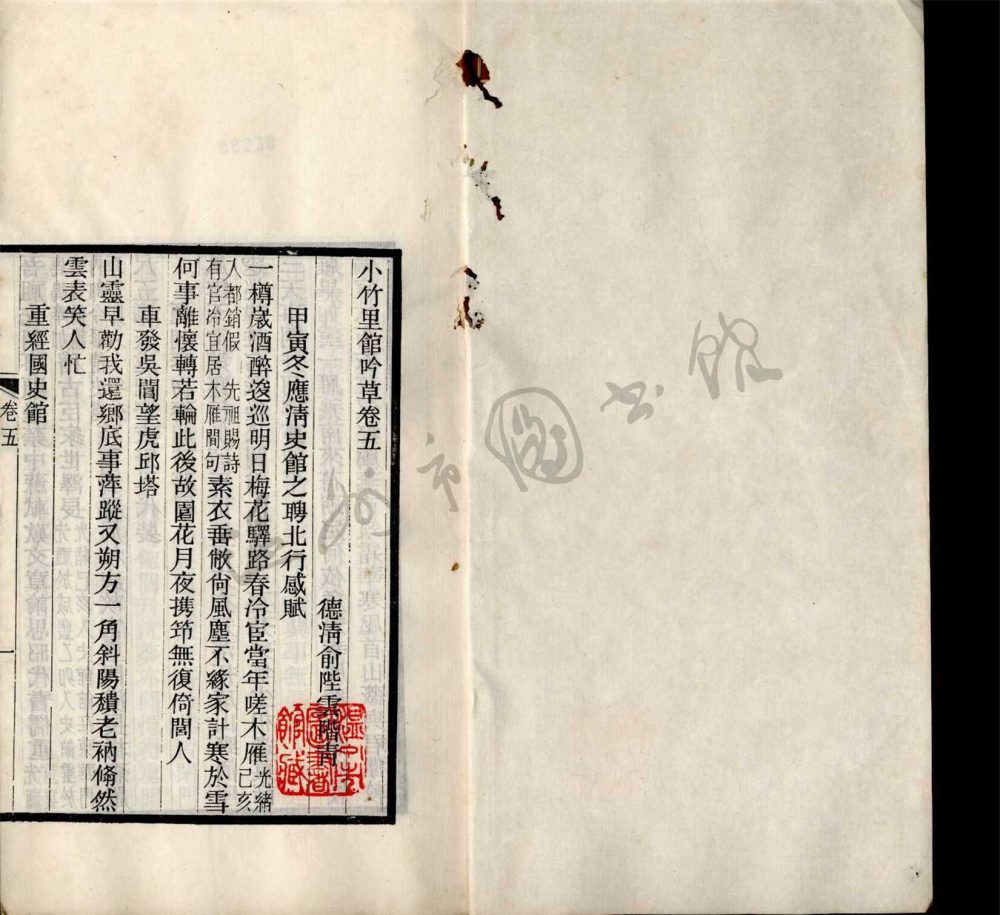 小竹里館吟草卷五
德淸俞陛雲階青
甲寅冬應淸史館之聘北行感賦
一樽歲酒醉逡巡明日梅花驛路春冷宦當年嗟木雁光緒己亥
入都銷假　先祖賜詩有官冷宜居木雁間句素衣番敝尙風塵不緣家計寒於雪
何事離懷轉若輪此後故園花月夜携筇無復倚閭人
車發吳閶望虎邱塔
山靈早勸我還鄉底事萍蹤又朔方一角斜陽頹老衲翛然
雲表笑人忙
重經國史館
卷五
一
溫州市圖書館藏
市圖书館